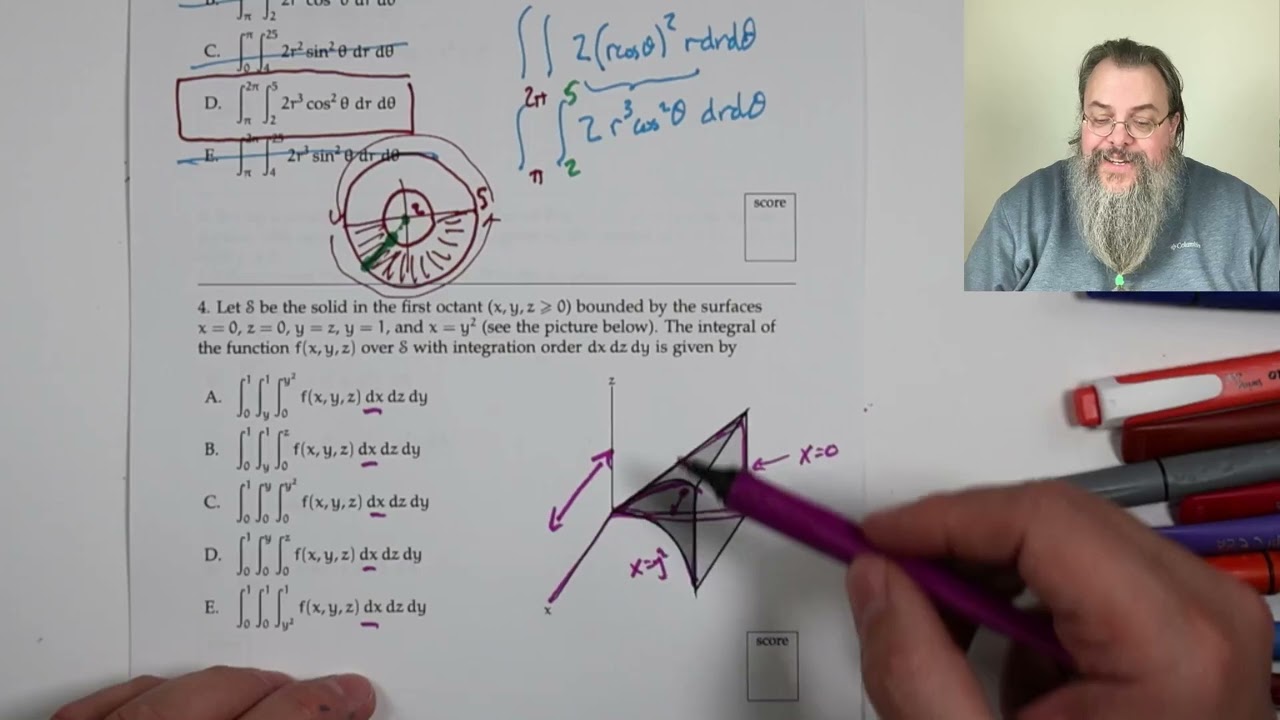 C. ∫₀^π ∫₄^25 2r² sin² θ dr dθ
D. ∫_π^2π ∫₂^5 2r³ cos² θ dr dθ
E. ∫_π^2π ∫₄^25 2r³ sin² θ dr dθ
∫∫ 2(rcosθ)² rdrdθ
∫_π^2π ∫₂^5 2r³cos²θ drdθ
2
5
score
4. Let S be the solid in the first octant (x, y, z ⩾ 0) bounded by the surfaces
x = 0, z = 0, y = z, y = 1, and x = y² (see the picture below). The integral of
the function f(x, y, z) over S with integration order dx dz dy is given by
A. ∫₀^1 ∫_y^1 ∫₀^y² f(x, y, z) dx dz dy
B. ∫₀^1 ∫_y^1 ∫₀^z f(x, y, z) dx dz dy
C. ∫₀^1 ∫₀^y ∫₀^y² f(x, y, z) dx dz dy
D. ∫₀^1 ∫₀^y ∫₀^z f(x, y, z) dx dz dy
E. ∫₀^1 ∫₀^1 ∫_y²^1 f(x, y, z) dx dz dy
z
x=0
x=y²
x
score
Columbia